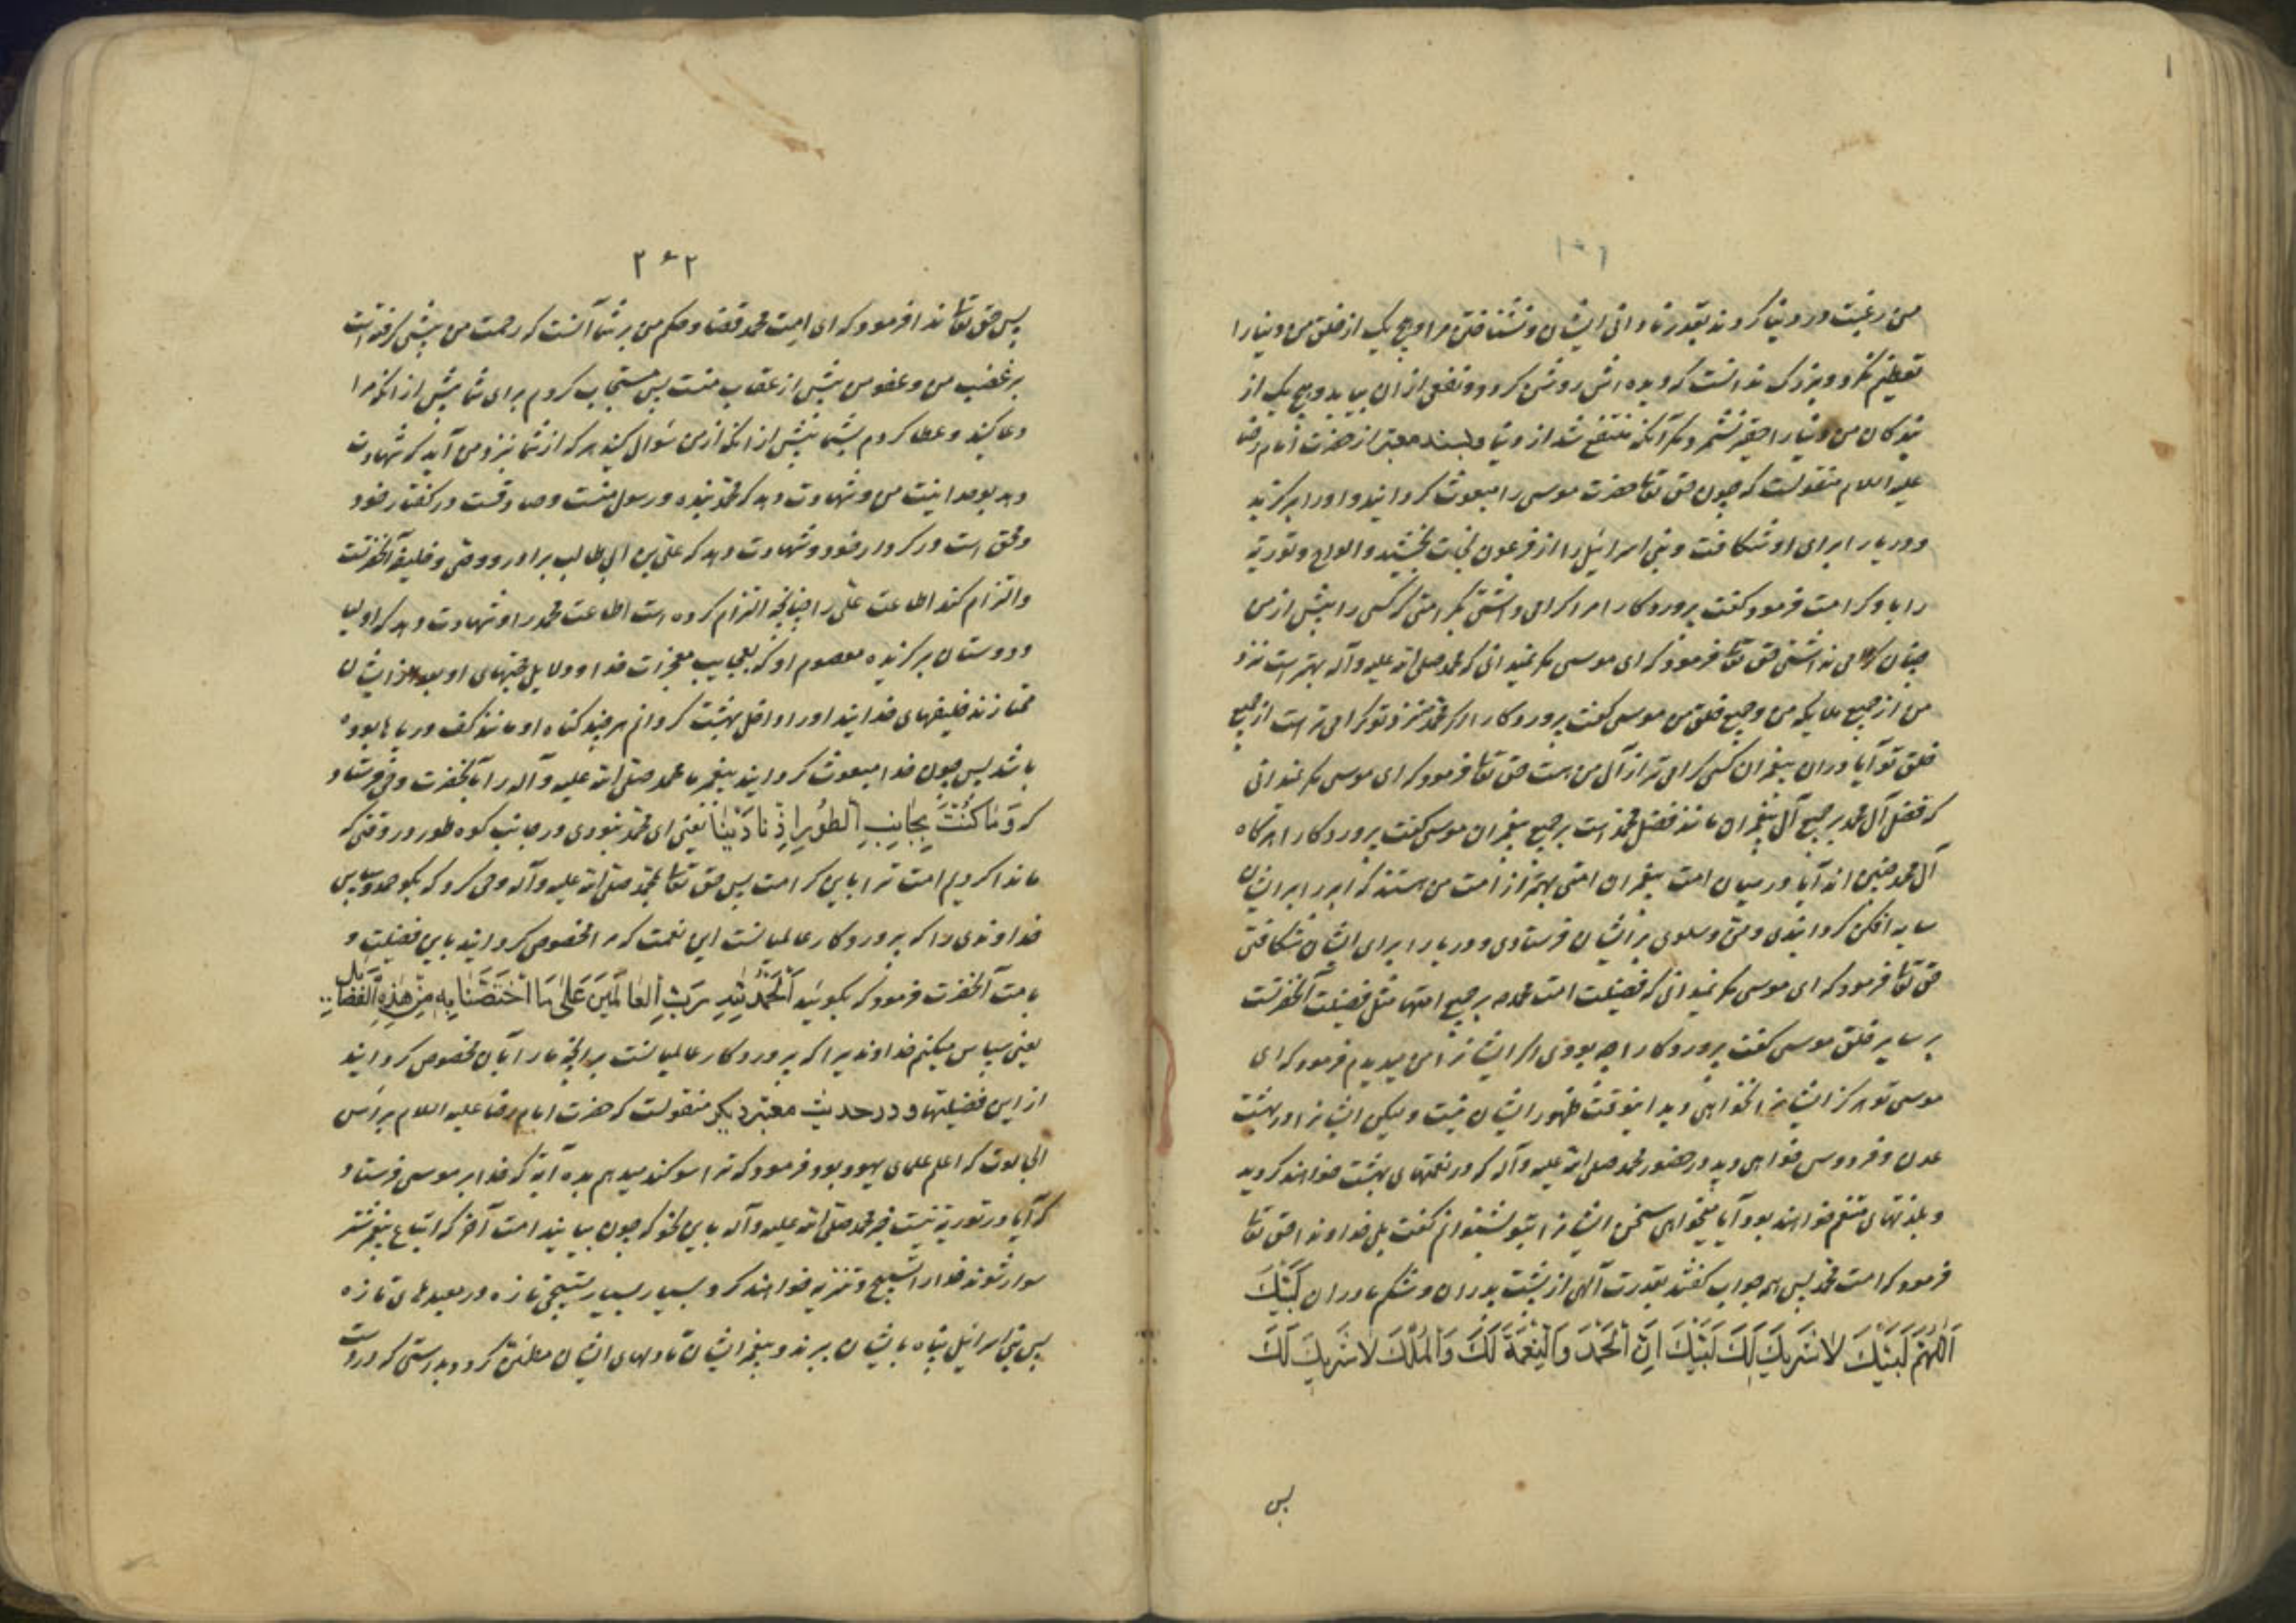 من رغبت در دنیا کردند بقدر نادانی ایشان و نشناختن مرا و هیچ یک از خلق من دنیا را
تعظیم نکرد و بزرک ندانست که دیده اش روشن کردد و نفعی از ان بیابد و هیچ یک از
بندکان من دنیا را حقیر نشمرد مکر آنکه منتفع شد از دنیا و بسند معتبر از حضرت امام رضا
علیه السلام منقولست که چون حق تعالی حضرت موسی را مبعوث کردانید و او را برکزید
و دریا را برای او شکافت و بنی اسرائیل را از فرعون نجات بخشید و الواح و توریة
را باو کرامت فرمود کفت پروردکارا مرا کرامی داشتی بکرامتی که کسی را پیش از من
چنان کرامی نداشتی حق تعالی فرمود که ای موسی مکر نمیدانی که محمد صلی الله علیه و آله بهتر است نزد
من از جمیع ملایکه من و جمیع خلق من موسی کفت پروردکارا اکر محمد نزد تو کرامی تر است از جمیع
خلق تو آیا در آل پیغمبران کسی کرامی تر از آل من هست حق تعالی فرمود که ای موسی مکر نمیدانی
که فضل آل محمد بر جمیع آل پیغمبران مانند فضل محمد است بر جمیع پیغمبران موسی کفت پروردکارا هرکاه
آل محمد چنین اند آیا در میان امت پیغمبران امتی بهتر از امت من هستند که ابر را بر ایشان
سایه افکن کردانیدی و من و سلوی بر ایشان فرستادی و دریا را برای ایشان شکافتی
حق تعالی فرمود که ای موسی مکر نمیدانی که فضیلت امت محمد بر جمیع امتها مثل فضیلت آنحضرتست
بر سایر خلق موسی کفت پروردکارا چه بودی اکر ایشانرا می دیدم فرمود که ای
موسی تو هرکز ایشانرا نخواهی دید اینوقت ظهور ایشان نیست ولیکن ایشانرا در بهشت
عدن و فردوس خواهی دید در حضور محمد صلی الله علیه و آله که در نعمتهای بهشت خواهند کردید
و بلذتهای متنعم خواهند بود آیا میخواهی سخن ایشانرا بتو بشنوانم کفت بلی خداوندا حق تعالی
فرمود که امت محمد پس همه جواب کفتند بقدرت آلهی از پشت پدران و شکم مادران لَبَّیْكَ
اَللّٰهُمَّ لَبَّیْكَ لَا شَرِیكَ لَكَ لَبَّیْكَ اِنَّ الْحَمْدَ وَالنِّعْمَةَ لَكَ وَالْمُلْكَ لَا شَرِیكَ لَكَ
پس
۲۶۲
پس حق تعالی ندا فرمود که ای امت محمد قضا و حکم من بر شما آنست که رحمت من پیشی کرفته است
بر غضب من و عفو من پیش از عقاب منست پس مستجاب کردم برای شما پیش از انکه مرا
دعا کنید و عطا کردم بشما پیش از انکه از من سؤال کنید هر که از شما نزد من آید که شهادت
دهد بوحدانیت من و شهادت دهد که محمد بنده و رسول منست و صادقست در کفتار خود
و محق است در کردار خود و شهادت دهد که علی بن ابی طالب برادر و وصی و خلیفه آنحضرتست
و التزام کند اطاعت علی را چنانچه التزام کرده است اطاعت محمد را و شهادت دهد که اولیا
و دوستان برکزیده معصوم او که بعجایب معجزات خدا و دلایل حجتهای او بعد از ایشان
ممتازند خلیفهای خدایند او را داخل بهشت کردانم هر چند کناه او مانند کف دریاها بوده
باشد پس چون خدا مبعوث کردانید پیغمبر ما محمد صلی الله علیه و آله را آنحضرت وحی فرستاد
که وَمَا كُنْتَ بِجَانِبِ الطُّورِ اِذْ نَادَیْنَا یعنی ای محمد نبودی در جانب کوه طور در وقتی که
ما ندا کردیم امت ترا باین کرامت پس حق تعالی بمحمد صلی الله علیه و آله وحی کرد که بکو حمد و سپاس
خداوندی را که پروردکار عالمیانست این نعمت که مرا مخصوص کردانید باین فضیلت و
بامت آنحضرت فرمود که بکوئید اَلْحَمْدُ لِلّٰهِ رَبِّ الْعَالَمِینَ عَلٰی مَا اخْتَصَّنَا بِهِ مِنْ هٰذِهِ الْفَضَائِلِ
یعنی سپاس میکنم خداوندیرا که پروردکار عالمیانست بر آنچه ما را بآن مخصوص کردانید
از این فضیلتها و در حدیث معتبر دیکر منقولست که حضرت امام رضا علیه السلام برأس
الجالوت که اعلم علمای یهود بود فرمود که ترا سوکند میدهم بده آیه که خدا بر موسی فرستاد
که آیا در توریة نیست خبر محمد صلی الله علیه و آله باین نحو که چون بیایند امت آخر که اتباع پیغمبر شتر
سوارند خدا را تسبیح و تنزیه خواهند کرد بسیار بسیار بتسبیحی تازه در معبدهای تازه
پس بنی اسرائیل پناه بایشان برند و پیغمبر ایشان تا دلهای ایشان مطمئن کردد بدرستی که در دست